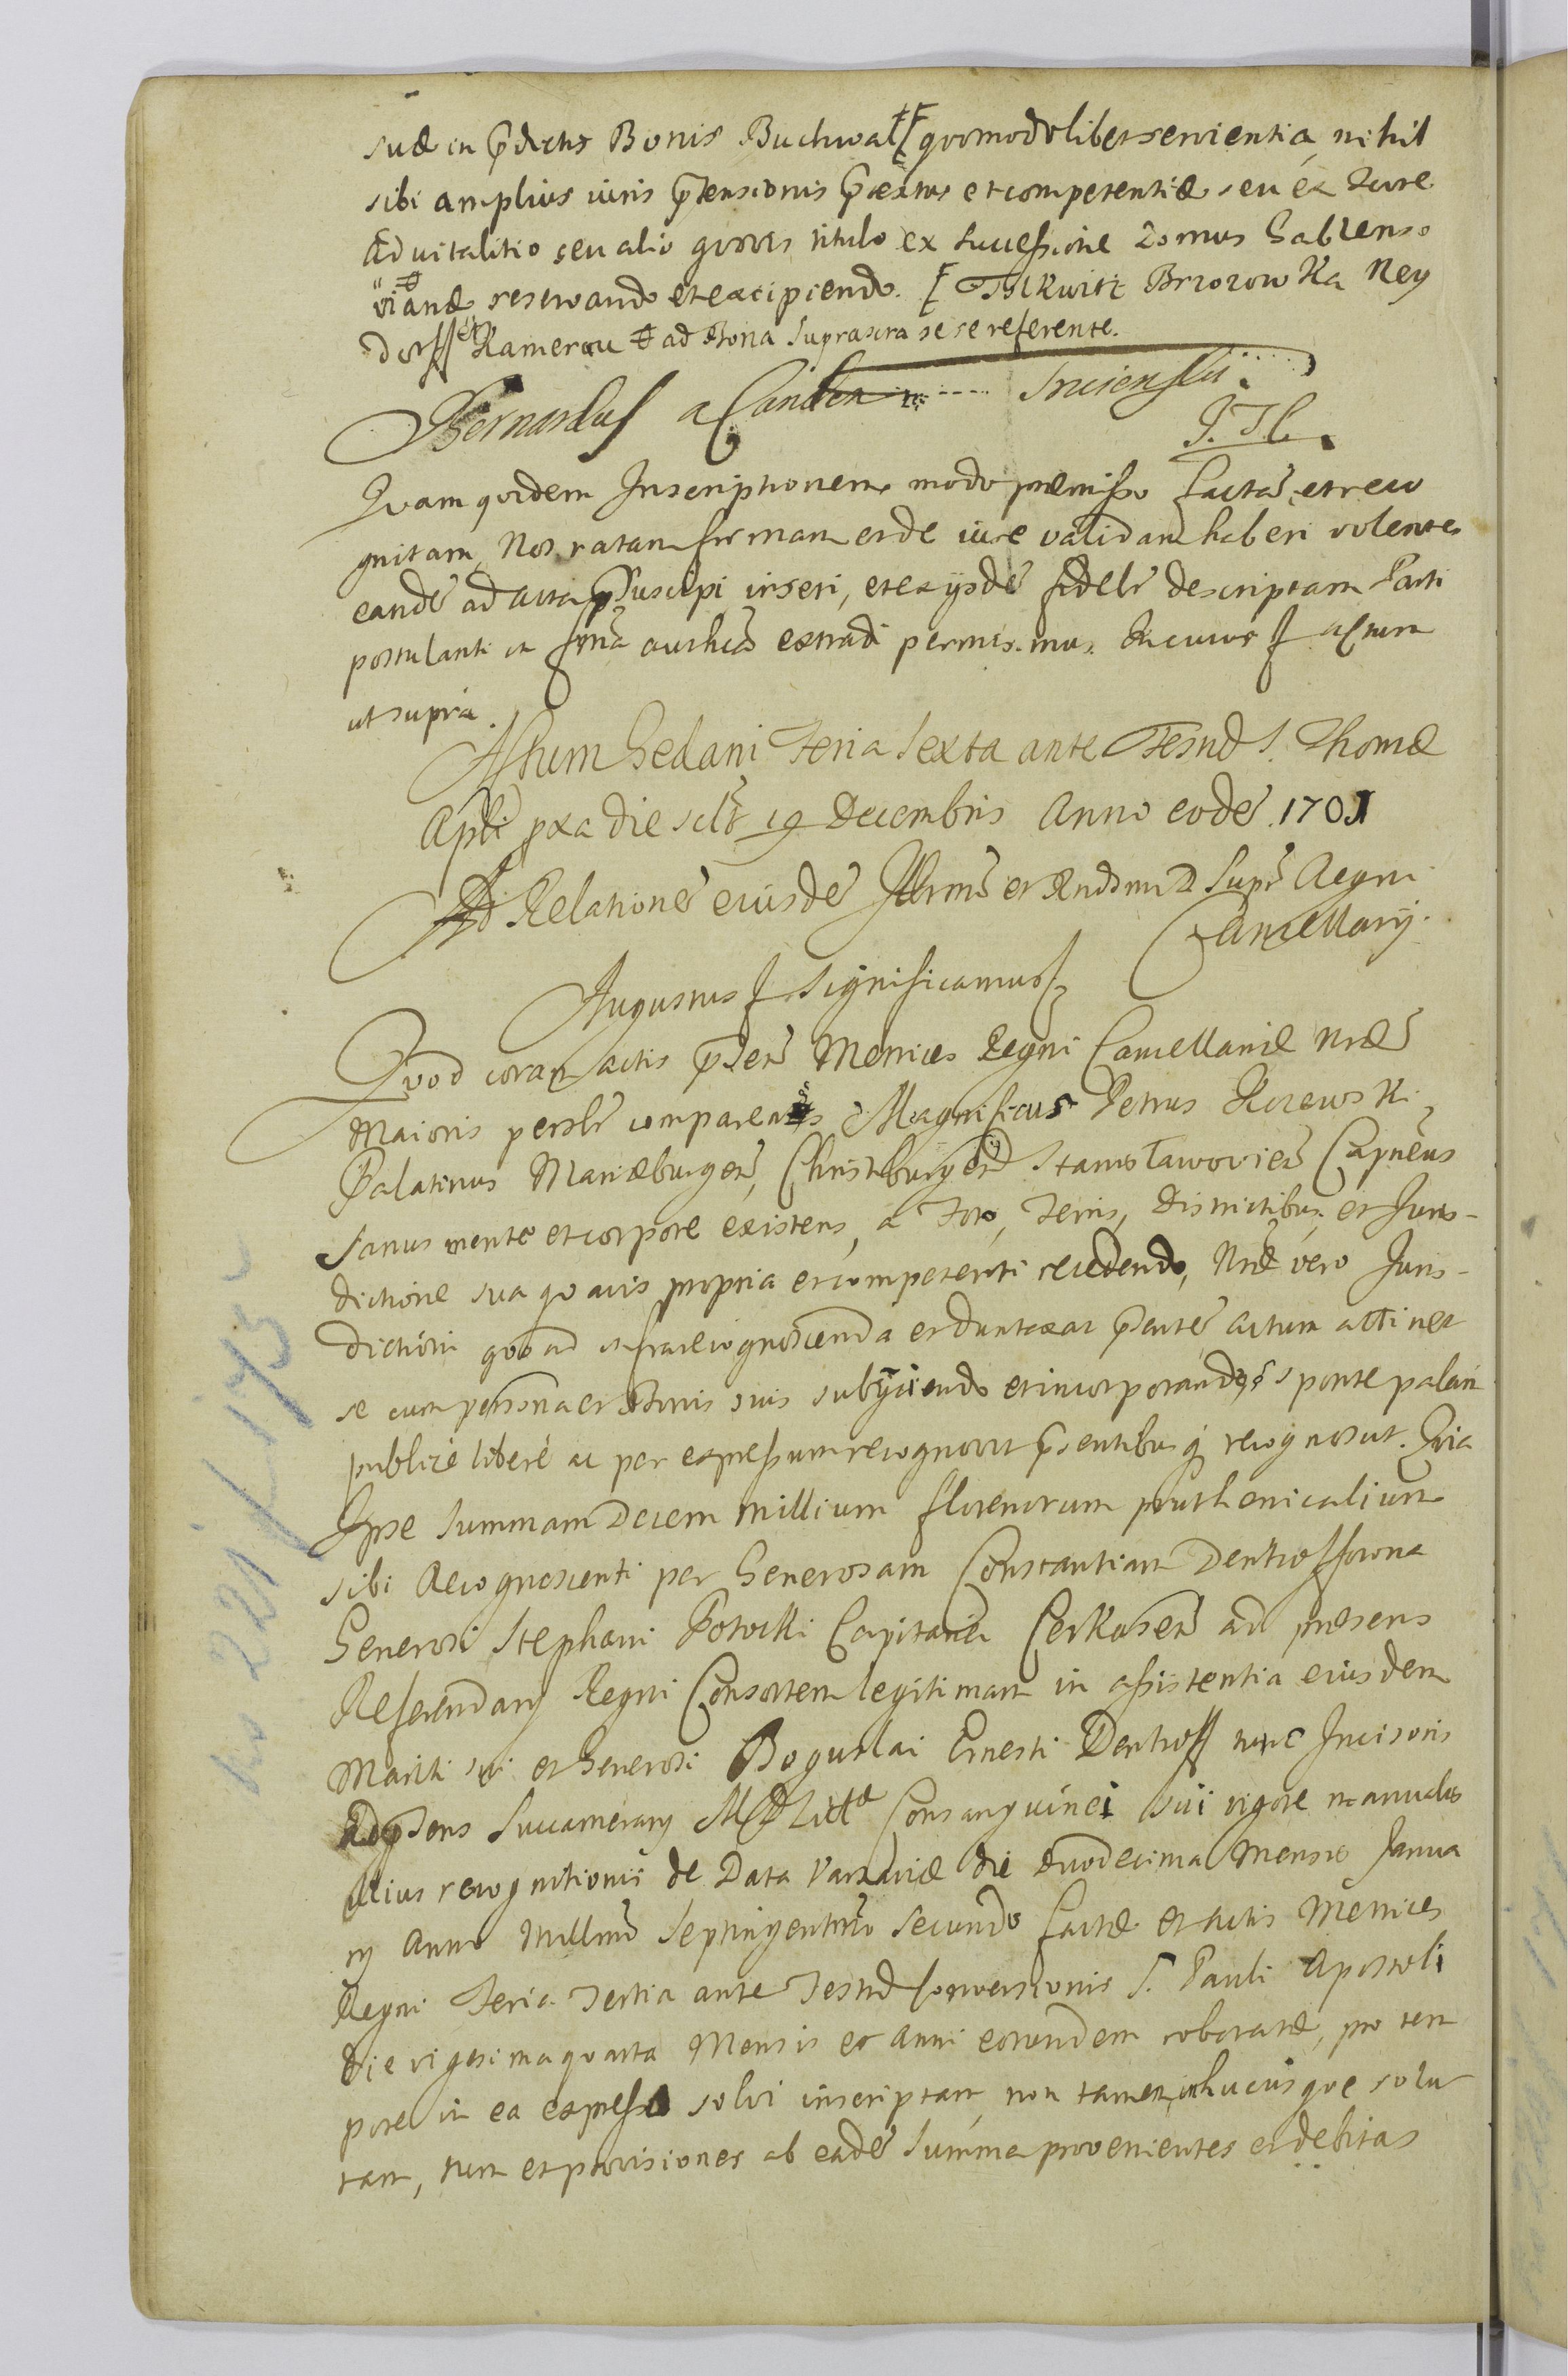 suæ in p̃dictis Bonis Buchwalt [ quomodolibet servientia, nihil
sibi amplius iuris p̃tensionis p̃textus et competentiæ seu ex Iure
Advitalitio seu alio quovis titulo ex successione Domus Gablenso
vianæ reservando et excipiendo. [ Brzozowka Ney
dorff et Kamerau ad Bona suprascra se se referente.
Bernardus a
Quam quidem Inscriptionem modo præmisso factã et reco
gnitam, Nos ratam firmam et de iure validam haberi volentes
eandẽ ad acta p̃ suscipi inseri, et ex ijsdẽ fidelr̃ descriptam Parti
postulanti in formã authcã extradi permisimus. In cuius actum
ut supra.
Actum Gedani Feria sexta ante Festũ S. Thomæ
Apłi pxa die sclt 19 Decembris Anno eodẽ 1701
Ad Relationẽ eiusdẽ Illrmi et Rndsmi D Supr̃ Regni
Cancellarij.
Augustus significamus
Quod coram actis p̃sentĩ Metrices Regni Cancellariæ Nr̃æ
Maioris persłr comparens Magnificus Petrus Kczewski
Palatinus Mariæburgeñ, Christburgeñ Stanisławovieñ Capneus
sanus mente et corpore existens, a Foro, Terris, Districtibus et Juris-
dictione sua quavis propria et competenti recedendo, Nræ vero Juris-
dictioni quoad infra recognoscenda et duntaxat p̃sentẽ actum attinet
se cum personna et Bonis suis subijciendo et incorporando, sponte palam
publicè liberè ac per expressum recognovit p̃sentibusq̃ recognoscit. Quia
Ipse summam Decem millium florenorum pruthenicalium
sibi Recognoscenti per Generosam Constantiam Denhoffowna
Generosi Stephani Potocki Capitanei Cerkaseñ ad præsens
Referendarij Regni Consortem legitimam in assistentia eiusdem
Mariti sui et Generosi Boguslai Ernesti Denhoff tunc Incisoris
ad p̃sens Succamerarij M D Litt Consanguinei sui vigore manualis
illius recognitionis de Data Varsaviæ die duodecima Mensis Janua
rij Anno Millmo Septingentmo Secundo factæ et Actis Metrices
Regni Feria Tertia ante Festũ Conversionis S. Pauli Apostoli
die vigesima quarta Mensis et Anni eorundem roboratæ, pro tem
pore in ea expresso solvi inscriptam, non tamen in hucusque solu
tam, tum et provisiones ab eadẽ summa provenientes et debitas